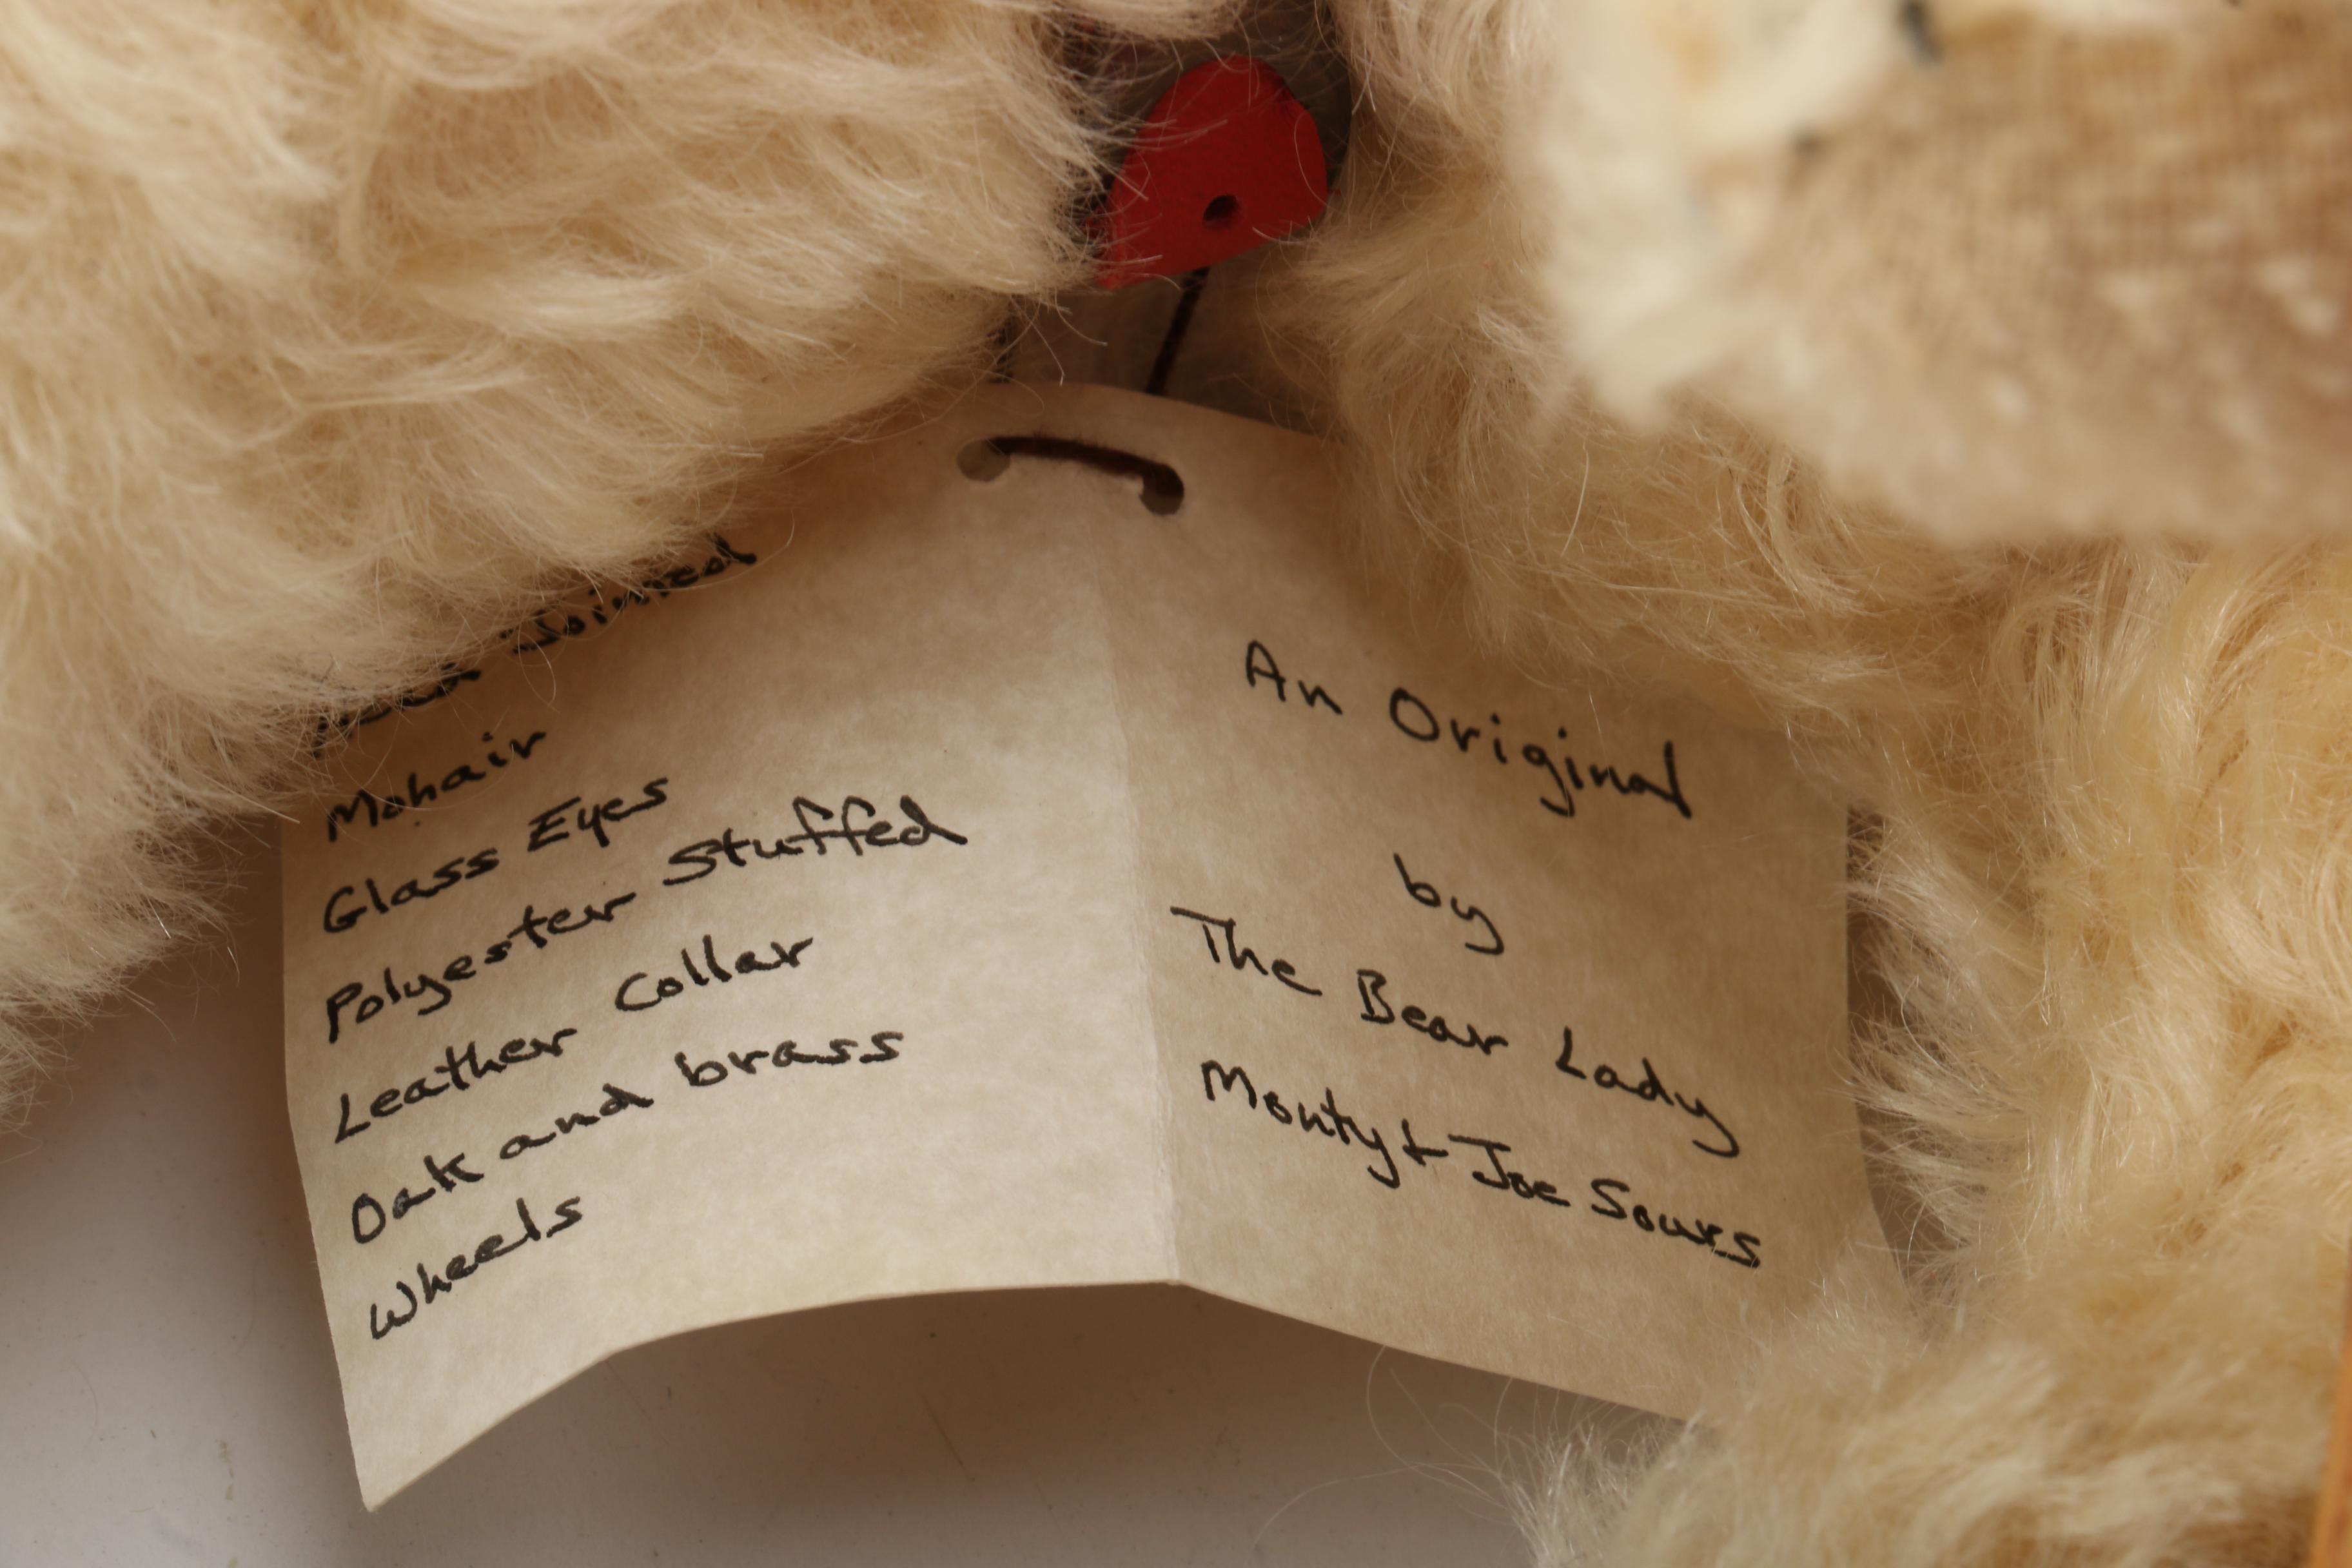 Head Joinned
Mohair
Glass Eyes
Polyester Stuffed
Leather Collar
Oak and brass
Wheels
An Original
by
The Bear Lady
Monty & Joe Sours